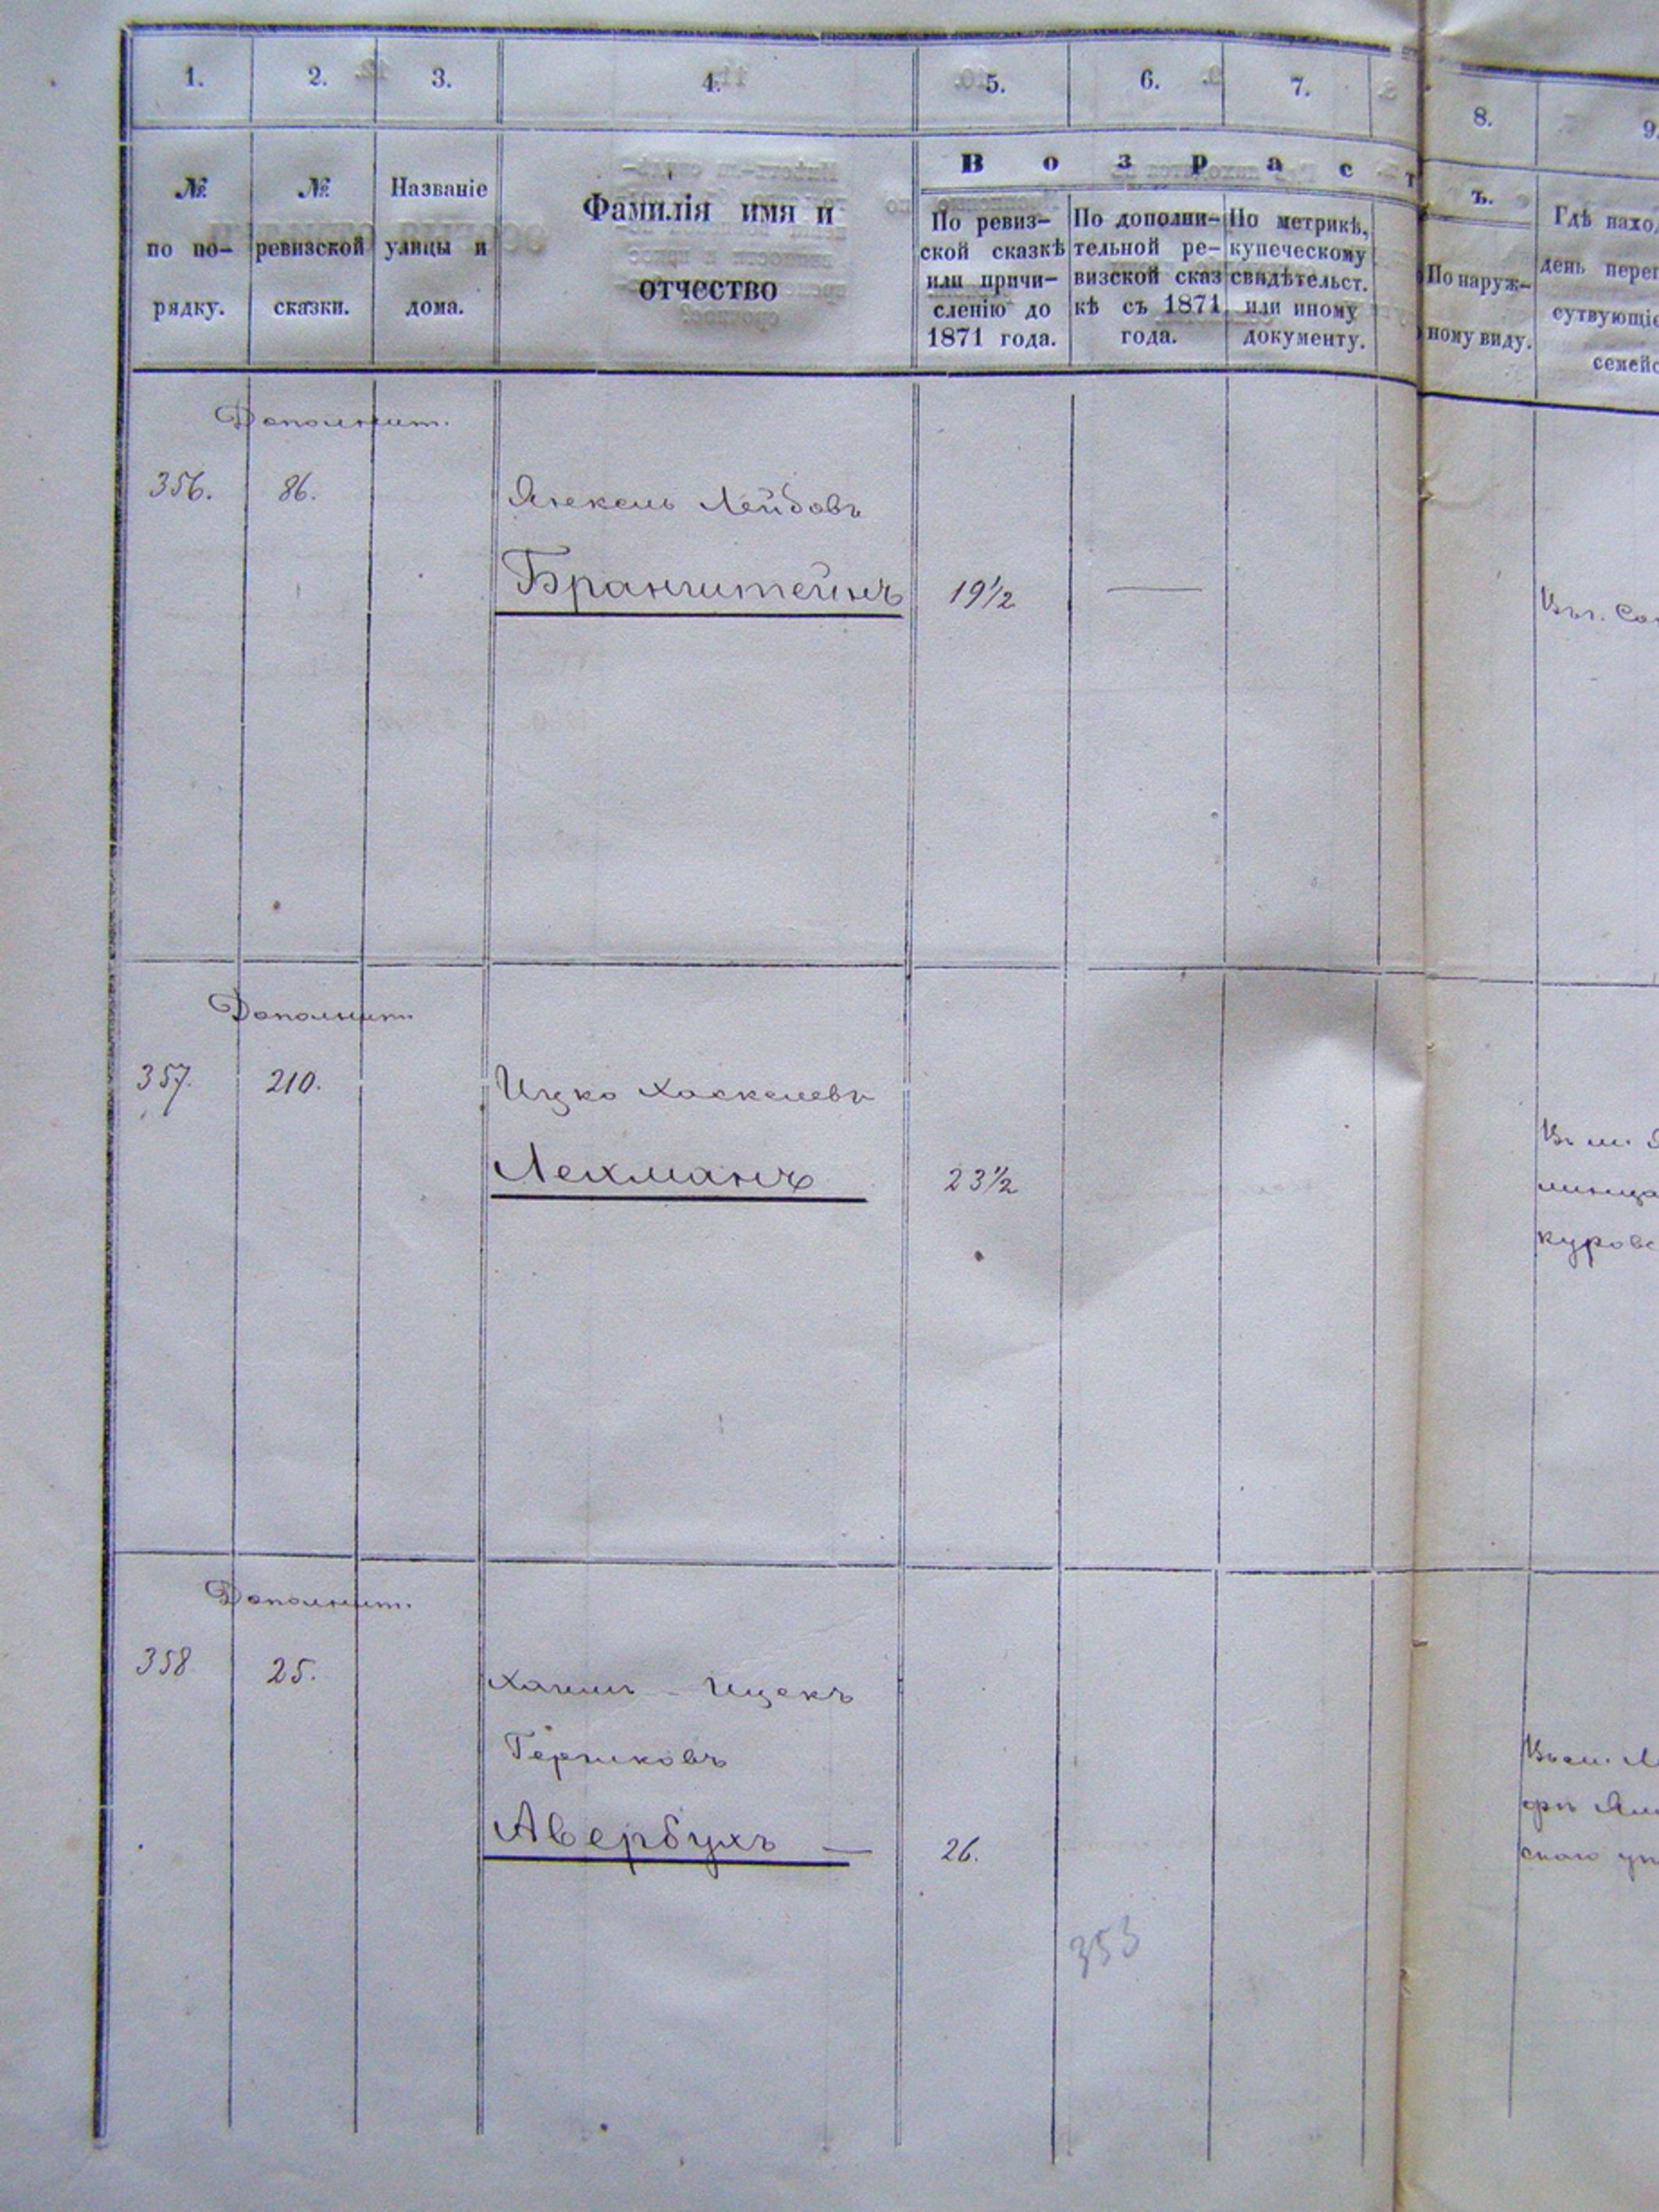 1. 2. 3. 4. 5. 6. 7. 8. 9.
№
по по-
рядку.
№
ревизской
сказки.
Названіе
улицы и
дома.
Фамилія имя и
отчество
Возрастъ.
По ревиз-
ской сказкѣ
или причи-
сленію до
1871 года.
По дополни-
тельной ре-
визской сказ
кѣ съ 1871
года.
По метрикѣ,
купеческому
свидѣтельст.
или иному
документу.
По наруж-
ному виду.
Гдѣ
день
Дополнит.
356. 86.
Янкель Лейбовъ
Бранштейнъ 19½ —
Дополнит.
357. 210.
Ицко Хаскелевъ
Лехманъ 23½
Дополнит.
358 25.
Хаимъ - Ицекъ
Гершковъ
Авербухъ — 26.
353